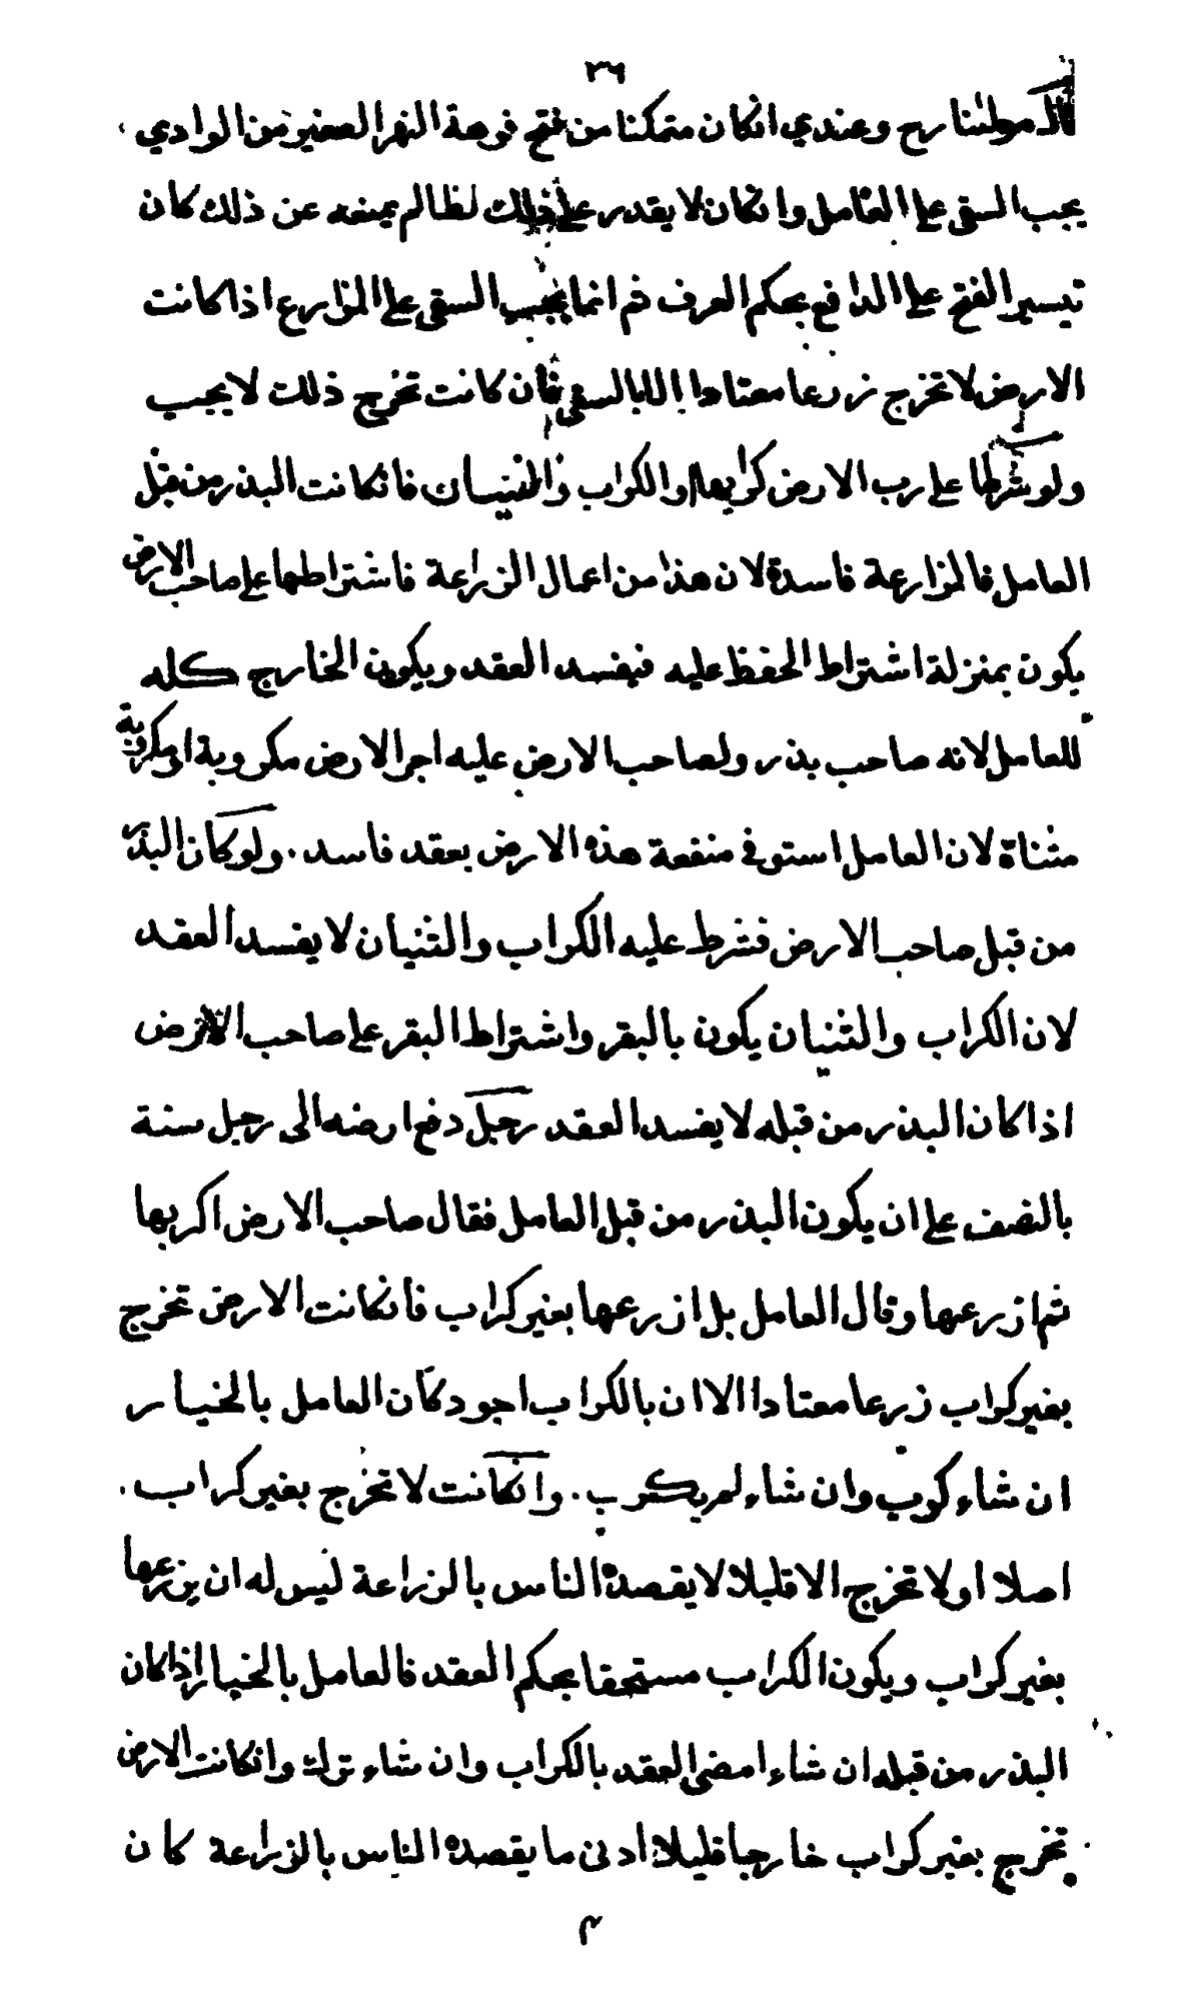 ٣٦
مولانا رح وعندي انكان متمكنا من فتح فوهة النهر الصغير من الوادي
يجب السقى على العامل وانكان لا يقدر على ذلك لظالم يمنعه عن ذلك كان
تيسير الفتح على الدافع بحكم العرف ثم انما يجب السقى على المزارع اذا كانت
الارض لا تخرج زرعا معتادا الا بالسقى فان كانت تخرج ذلك لا يجب
ولو شرطا على رب الارض كرابها او الكراب والثنيان فانكانت البذر من قبل
العامل فالمزارعة فاسدة لان هذا من اعمال الزراعة فاشتراطها على صاحب الارض
يكون بمنزلة اشتراط الحفظ عليه فيفسد العقد ويكون الخارج كله
للعامل لانه صاحب بذر ولصاحب الارض عليه اجر الارض مكروبة او مكروبة
مثناة لان العامل استوفى منفعة هذه الارض بعقد فاسد . ولو كان البذر
من قبل صاحب الارض فشرط عليه الكراب والثنيان لا يفسد العقد
لان الكراب والثنيان يكون بالبقر واشتراط البقر على صاحب الارض
اذا كان البذر من قبله لا يفسد العقد رجل دفع ارضه الى رجل سنة
بالنصف على ان يكون البذر من قبل العامل فقال صاحب الارض اكربها
ثم ازرعها وقال العامل بل ازرعها بغير كراب فانكانت الارض تخرج
بغير كراب زرعا معتادا الا ان بالكراب اجود كان العامل بالخيار
ان شاء كرب وان شاء لم يكرب . وانكانت لا تخرج بغير كراب .
اصلا او لا تخرج الا قليلا لا يقصده الناس بالزراعة ليس له ان يزرعها
بغير كراب ويكون الكراب مستحقا بحكم العقد فالعامل بالخيار اذا كان
البذر من قبله ان شاء امضى العقد بالكراب وان شاء ترك وانكانت الارض
تخرج بغير كراب خارجا قليلا ادنى ما يقصده الناس بالزراعة كان